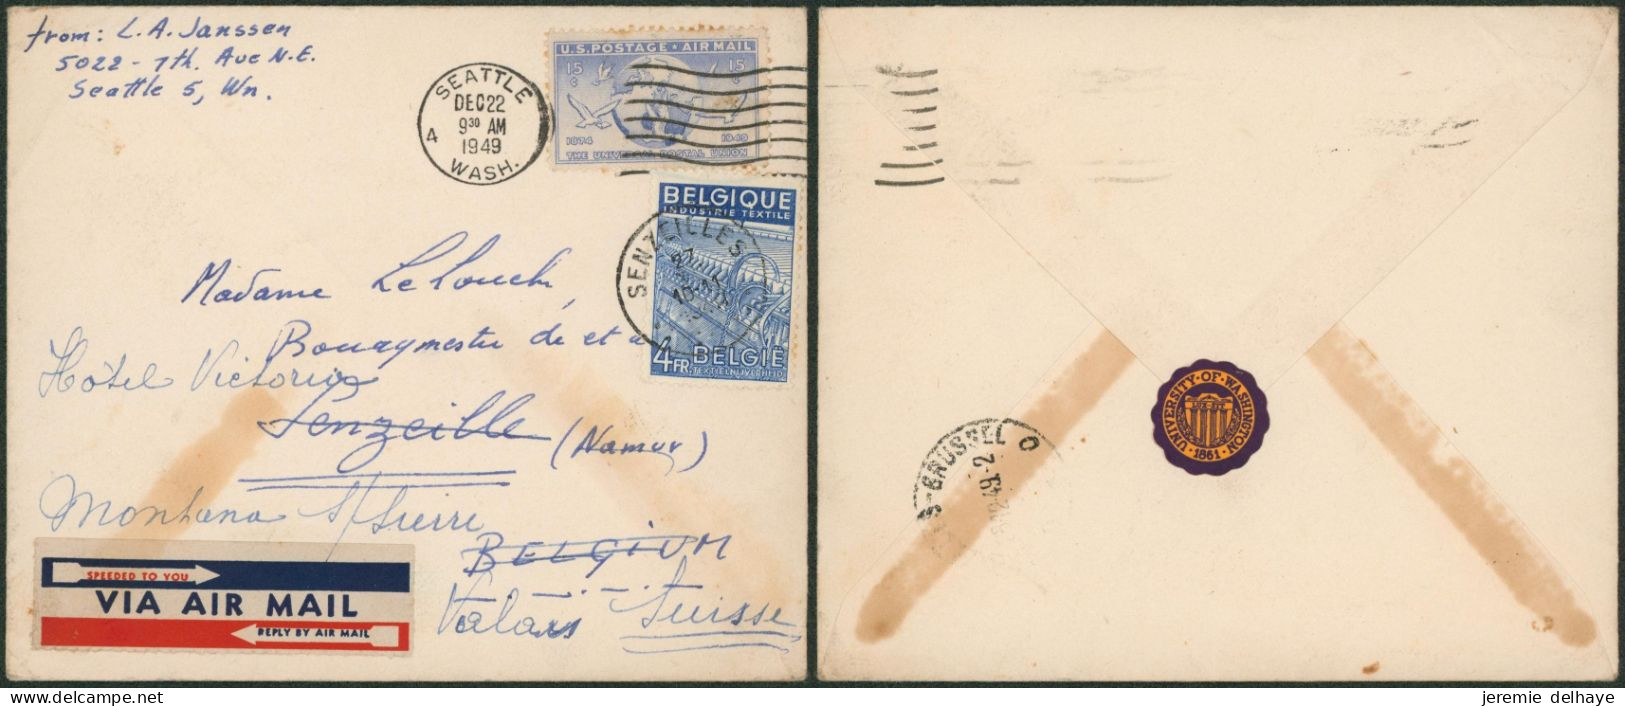 from: L.A. Janssen
5022 - 7th. Ave N.E.
Seattle 5, Wn.
SEATTLE
DEC 22
9 30 AM
1949
4
WASH.
U.S. POSTAGE ★ AIR MAIL
15 ¢ 15 ¢
1874 1949
THE UNIVERSAL POSTAL UNION
BELGIQUE
INDUSTRIE TEXTILE
SENZEILLES
4 FR BELGIË
TEXTIELNIJVERHEID
Madame Lelouch,
Bourgmestre de et à
Hôtel Victoria
Senzeille (Namur)
Montana s/Sierre
BELGIUM
Valais Suisse
SPEEDED TO YOU
VIA AIR MAIL
REPLY BY AIR MAIL
UNIVERSITY · OF · WASHINGTON
LUX SIT
· 1861 ·
BRUSSEL
jeremie delhaye